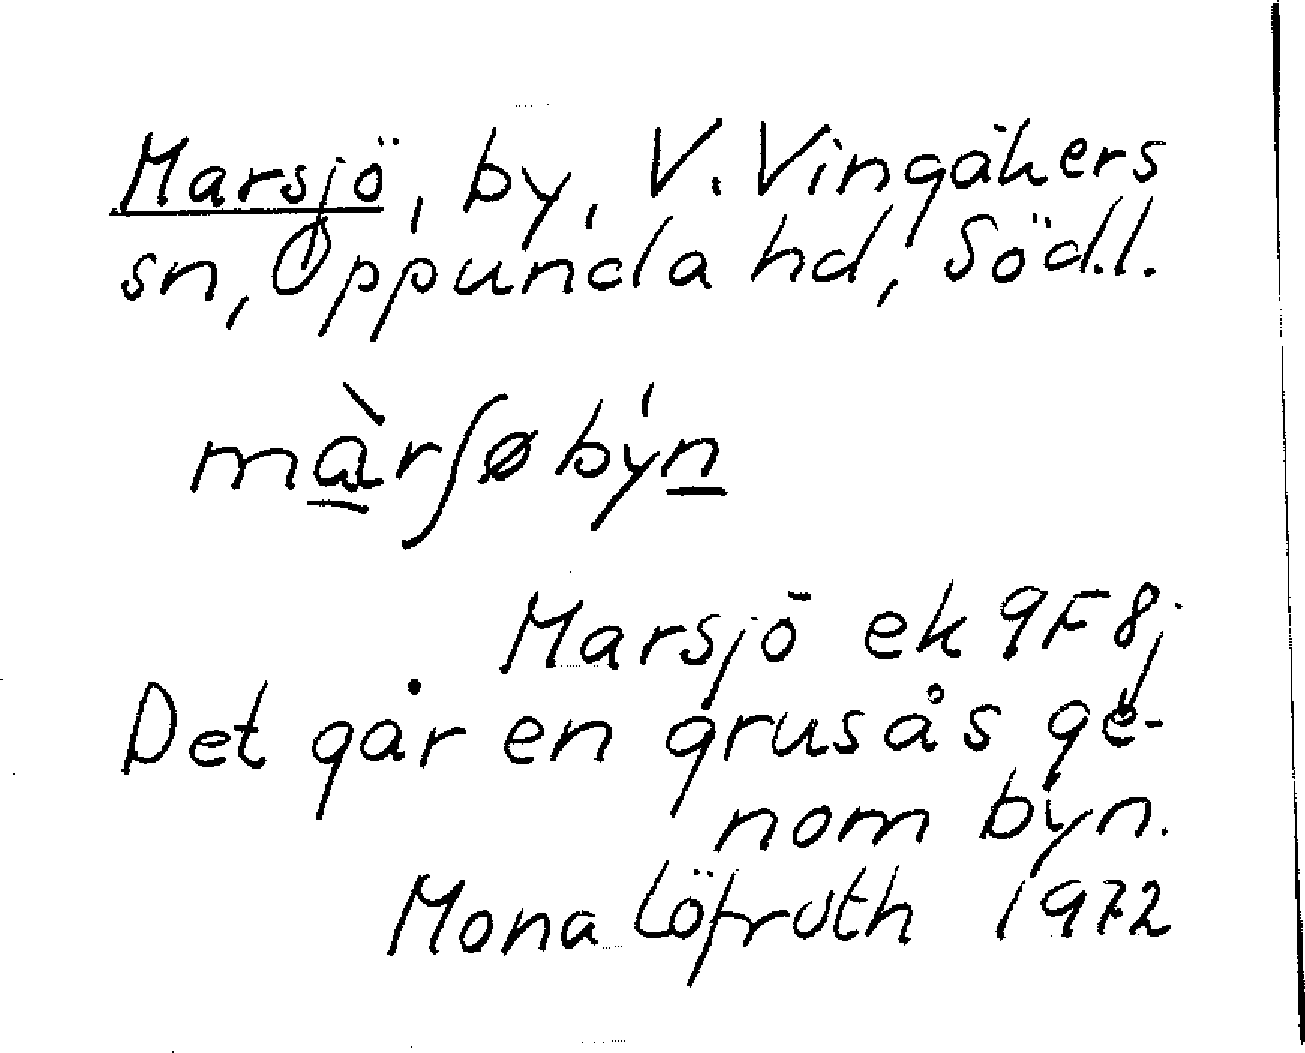 Marsjö, by, V. Vingåkers
sn, Oppunda hd, Södl.
màrʃøbýn
Marsjö ek 9F8j
Det går en grusås ge-
nom byn.
Mona Löfroth 1972